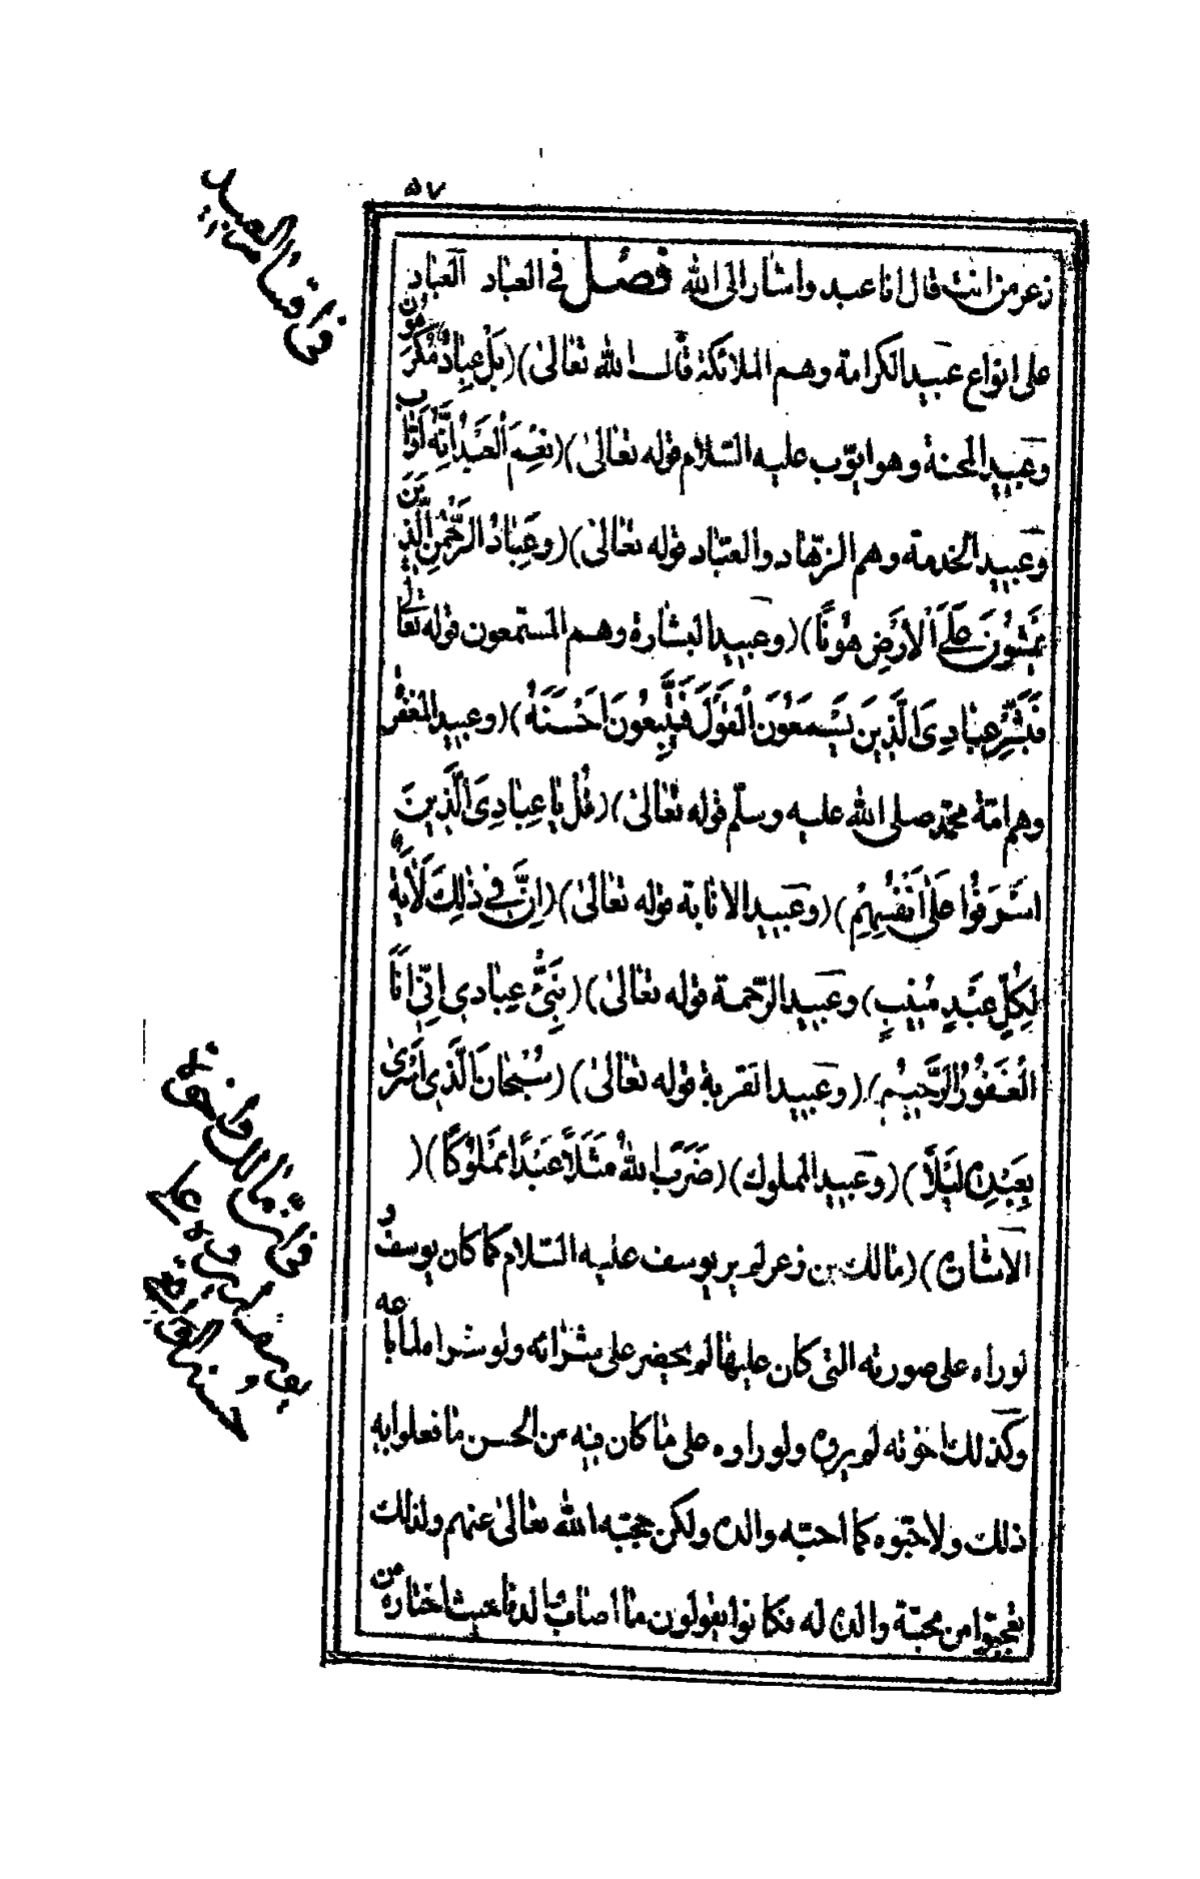 ٥٧
زعر من انت قال انا عبد واشار الى الله فصل في العباد العباد
على انواع عبيد الكرامة وهم الملائكة قال الله تعالى)(بَلْ عِبَادٌ مُكْرَمُونَ
وعبيد المحنة وهو ايوّب عليه السّلام قوله تعالى)(نِعْمَ الْعَبْدُ اِنَّهُ اَوَّابٌ
وعبيد الخدمة وهم الزهّاد والعبّاد قوله تعالى)(وَعِبَادُ الرَّحْمٰنِ الَّذِينَ
يَمْشُونَ عَلَى الْاَرْضِ هَوْنًا)(وعبيد البشارة وهم المستمعون قوله تعالى
فَبَشِّرْ عِبَادِىَ الَّذِينَ يَسْتَمِعُونَ الْقَوْلَ فَيَتَّبِعُونَ اَحْسَنَهُ)(وعبيد المغفرة
وهم امّة محمّد صلى الله عليه وسلّم قوله تعالى)(قُلْ يَا عِبَادِىَ الَّذِينَ
اَسْرَفُوا عَلَى اَنْفُسِهِمْ)(وعبيد الانابة قوله تعالى)(اِنَّ فِي ذٰلِكَ لَاٰيَةً
لِكُلِّ عَبْدٍ مُنِيبٍ)وعبيد الرّحمة قوله تعالى)(نَبِّئْ عِبَادِى اِنِّى اَنَا
الْغَفُورُ الرَّحِيمُ)(وعبيد القربة قوله تعالى)(سُبْحَانَ الَّذِى اَسْرٰى
بِعَبْدِهِ لَيْلًا)(وعبيد المملوك)(ضَرَبَ اللهُ مَثَلًا عَبْدًا مَمْلُوكًا)(
الاشارة)(مالك بن زعر لم ير يوسف عليه السّلام كما كان يوسف و
لو راه على صورته التى كان عليها لم يحضر على شرائه ولو شراه لما باعه
وكذلك اخوته لم يروه ولو راوه على ما كان فيه من الحسن ما فعلوا به
ذلك ولاحبّوه كما احبّه والده ولكن حجبه الله تعالى عنهم ولذلك
تعجبّوا من محبّة والده له فكانوا يقولون ما اصاب والدنا حيث اختاره من
في اقسام العبيد
في انّ مالك واخوته
لم يروه على
يوسف
حسنه الواقع